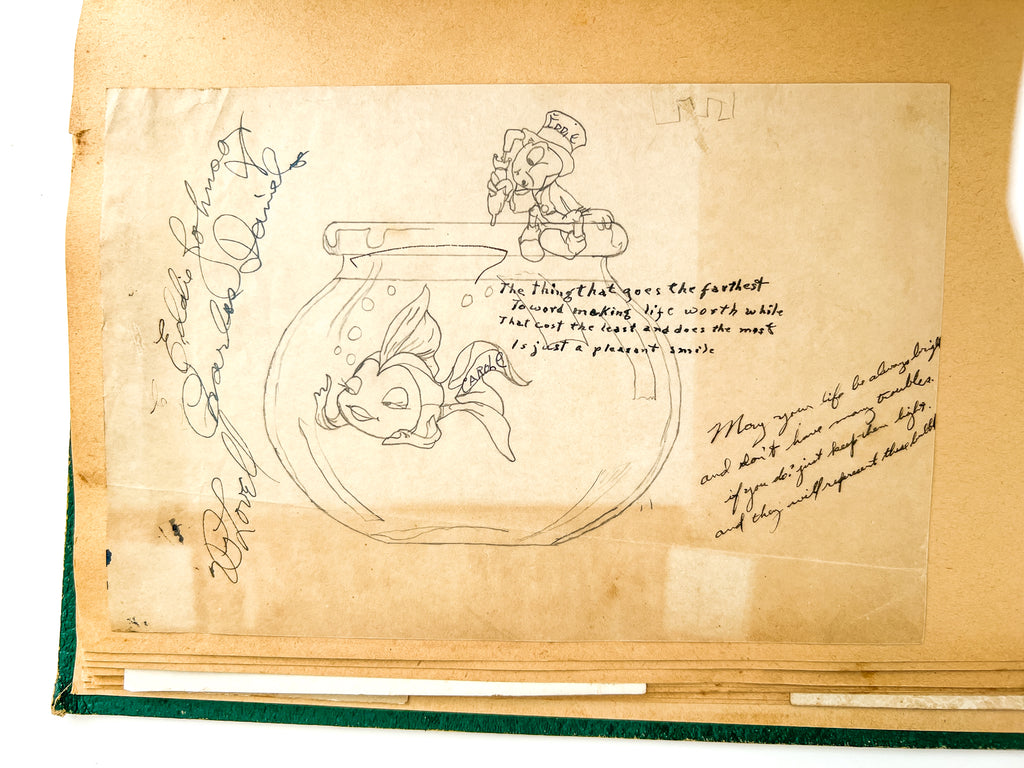 EDDIE
The thing that goes the farthest
Toword making life worth while
That cost the least and does the most
Is just a pleasant smile
CAROLE
May your life be always bright
and don't have many troubles.
if you do: just keep them light.
and they will represent these bubbl
To Eddie Johnson
Carole Daniels
With Love